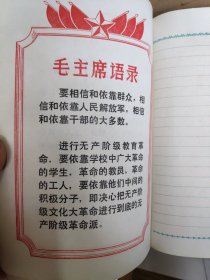 毛主席语录
要相信和依靠群众，相
信和依靠人民解放军，相信
和依靠干部的大多数。
进行无产阶级教育革
命，要依靠学校中广大革命
的学生，革命的教员，革命
的工人，要依靠他们中间的
积极分子，即决心把无产阶
级文化大革命进行到底的无
产阶级革命派。